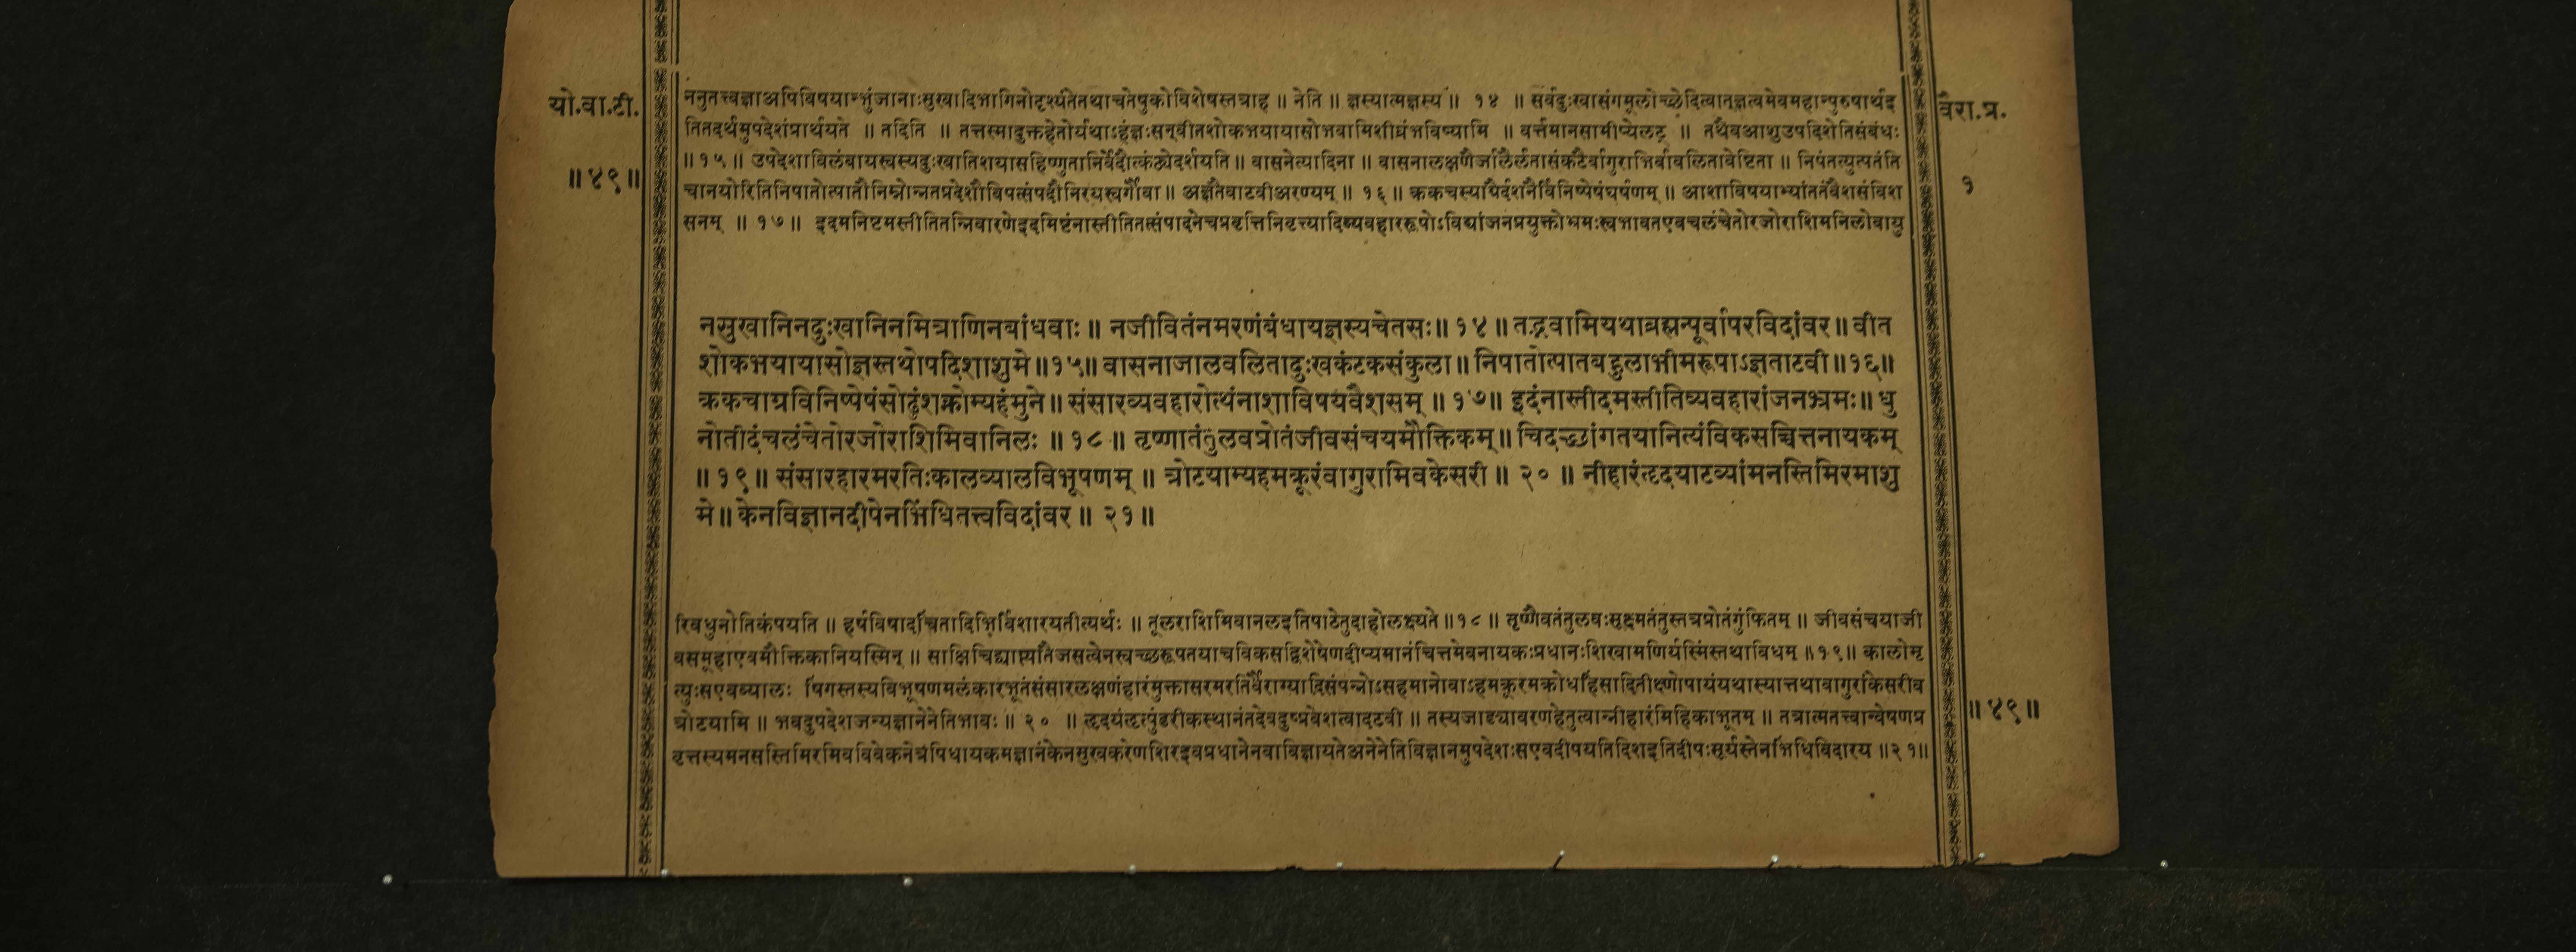 यो.वा.टी.
॥४९॥
ननुतत्त्वज्ञाअपिविषयान्भुंजानाःसुखादिभागिनोदृश्यंतेतथाचतेषुकोविशेषस्तत्राह ॥ नेति ॥ ज्ञस्यात्मज्ञस्य ॥ १४ ॥ सर्वदुःखासंगमूलोच्छेदित्वात्तज्ञत्वमेवमहान्पुरुषार्थइ
तितदर्थमुपदेशंप्रार्थयते ॥ तदिति ॥ तत्तस्मादुक्तहेतोर्यथाऽहंज्ञःसन्वीतशोकभयायासोभवामिशीघ्रंभविष्यामि ॥ वर्त्तमानसामीप्येलट् ॥ तथैवआशुउपदिशेतिसंबंधः
॥१५॥ उपदेशाविलंबायस्वस्यदुःखातिशयासहिष्णुतानिर्वेदौत्कंठ्येदर्शयति ॥ वासनेत्यादिना ॥ वासनालक्षणैर्जालैर्लतासंकटैर्वागुराभिर्वावलितावेष्टिता ॥ निपंतत्युत्पतंति
चानयोरितिनिपातोत्पातौनिम्नोन्नतप्रदेशौविपत्संपदौनिरयस्वर्गौवा ॥ अज्ञतैवाटवीअरण्यम् ॥ १६ ॥ क्रकचस्याग्रैर्दशनैर्विनिष्पेषंघर्षणम् ॥ आशाविषयाभ्यांततंवैशसंविश
सनम् ॥ १७ ॥ इदमनिष्टमस्तीतितन्निवारणेइदमिष्टंनास्तीतितत्संपादनेचप्रवृत्तिनिवृत्त्यादिव्यवहाररूपोऽविद्यांजनप्रयुक्तोभ्रमःस्वभावतएवचलंचेतोरजोराशिमनिलोवायु
वैरा.प्र.
१
नसुखानिनदुःखानिनमित्राणिनबांधवाः ॥ नजीवितंनमरणंबंधायज्ञस्यचेतसः ॥ १४ ॥ तद्भवामियथाब्रह्मन्पूर्वापरविदांवर ॥ वीत
शोकभयायासोज्ञस्तथोपदिशाशुमे ॥१५॥ वासनाजालवलितादुःखकंटकसंकुला ॥ निपातोत्पातबहुलाभीमरूपाऽज्ञताटवी ॥१६॥
क्रकचाग्रविनिष्पेषंसोढुंशक्नोम्यहंमुने ॥ संसारव्यवहारोत्थंनाशाविषयवैशसम् ॥ १७ ॥ इदंनास्तीदमस्तीतिव्यवहारांजनभ्रमः ॥ धु
नोतीदंचलंचेतोरजोराशिमिवानिलः ॥ १८ ॥ तृष्णातंतुलवप्रोतंजीवसंचयमौक्तिकम् ॥ चिदच्छांगतयानित्यंविकसच्चित्तनायकम्
॥ १९ ॥ संसारहारमरतिःकालव्यालविभूषणम् ॥ त्रोटयाम्यहमक्रूरंवागुरामिवकेसरी ॥ २० ॥ नीहारंहृदयाटव्यांमनस्तिमिरमाशु
मे ॥ केनविज्ञानदीपेनभिंधितत्त्वविदांवर ॥ २१ ॥
रिवधुनोतिकंपयति ॥ हर्षविषादचिंतादिभिर्विशारयतीत्यर्थः ॥ तूलराशिमिवानलइतिपाठेतुदाहोलक्ष्यते ॥१८॥ तृष्णैवतंतुलवःसूक्ष्मतंतुस्तत्रप्रोतंगुंफितम् ॥ जीवसंचयाजी
वसमूहाएवमौक्तिकानियस्मिन् ॥ साक्षिचिद्व्याप्त्यातैजसत्वेनस्वच्छरूपतयाचविकसद्विशेषेणदीप्यमानंचित्तमेवनायकःप्रधानःशिखामणिर्यस्मिंस्तथाविधम् ॥१९॥ कालोमृ
त्युःसएवव्यालः षिगस्तस्यविभूषणमलंकारभूतंसंसारलक्षणंहारंमुक्तासरमरतिर्वैराग्यादिसंपन्नोऽसहमानोवाऽहमक्रूरमक्रोधहिंसादितीक्ष्णोपायंयथास्यात्तथावागुरांकेसरीव
त्रोटयामि ॥ भवदुपदेशजन्यज्ञानेनेतिभावः ॥ २० ॥ हृदयंहृत्पुंडरीकस्थानंतदेवदुष्प्रवेशत्वादटवी ॥ तस्यजाड्यावरणहेतुत्वान्नीहारंमिहिकाभूतम् ॥ तत्रात्मतत्त्वान्वेषणप्र
वृत्तस्यमनसस्तिमिरमिवविवेकनेत्रंपिधायकमज्ञानंकेनसुखकरेणशिरइवप्रधानेनवाविज्ञायतेअनेनेतिविज्ञानमुपदेशःसएवदीपयतिदिशइतिदीपःसूर्यस्तेनभिंधिविदारय ॥२१॥
॥४९॥